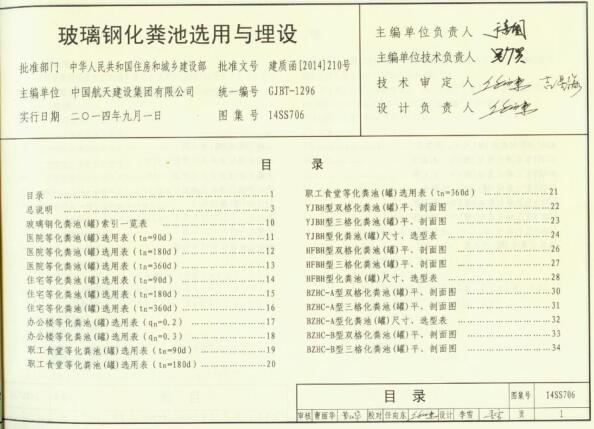 玻璃钢化粪池选用与埋设
批准部门 中华人民共和国住房和城乡建设部 批准文号 建质函[2014]210号
主编单位 中国航天建设集团有限公司 统一编号 GJBT-1296
实行日期 二〇一四年九月一日 图集号 14SS706
主编单位负责人
主编单位技术负责人
技术审定人
设计负责人
目 录
目录 1
总说明 3
玻璃钢化粪池(罐)索引一览表 10
医院等化粪池(罐)选用表(tn=90d) 11
医院等化粪池(罐)选用表(tn=180d) 12
医院等化粪池(罐)选用表(tn=360d) 13
住宅等化粪池(罐)选用表(tn=90d) 14
住宅等化粪池(罐)选用表(tn=180d) 15
住宅等化粪池(罐)选用表(tn=360d) 16
办公楼等化粪池(罐)选用表(qn=0.2) 17
办公楼等化粪池(罐)选用表(qn=0.3) 18
职工食堂等化粪池(罐)选用表(tn=90d) 19
职工食堂等化粪池(罐)选用表(tn=180d) 20
职工食堂等化粪池(罐)选用表(tn=360d) 21
YJBH型双格化粪池(罐)平、剖面图 22
YJBH型三格化粪池(罐)平、剖面图 23
YJBH型化粪池(罐)尺寸、选型表 24
HFBH型双格化粪池(罐)平、剖面图 26
HFBH型三格化粪池(罐)平、剖面图 27
HFBH型化粪池(罐)尺寸、选型表 28
BZHC-A型双格化粪池(罐)平、剖面图 30
BZHC-A型三格化粪池(罐)平、剖面图 31
BZHC-A型化粪池(罐)尺寸、选型表 32
BZHC-B型双格化粪池(罐)平、剖面图 33
BZHC-B型三格化粪池(罐)平、剖面图 34
目 录 图集号 14SS706
审核 曹丽华 校对 任向东 设计 李雪 页 1